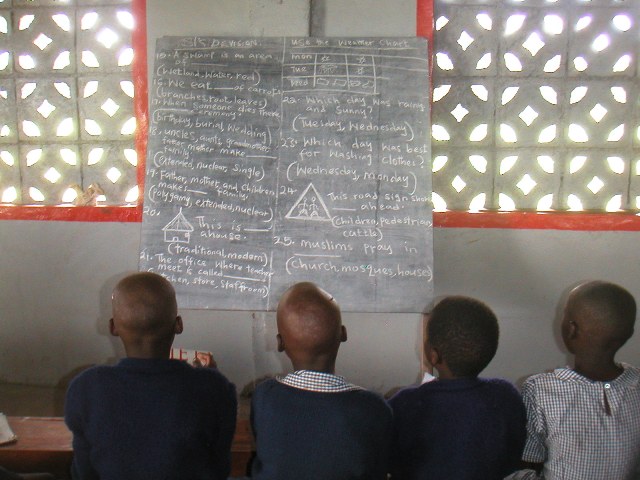 S/S REVISION
15. A swamp is an area of
(Wetland, Water, road)
16. We eat ___ of carrot
(branches, root, leaves)
17. When someone dies there
is ___ ceremony
(birthday, burial, Wedding)
18. Uncles, aunts, grandmother
father, mother make ___
family
(extended, nuclear, single)
19. Father, mother, and children
make ___ family.
(polygamy, extended, nuclear)
20.
This is ___
a house.
(traditional, modern)
21. The office where teachers
meet is called ___
(kitchen, store, staffroom)
Use the Weather Chart
Mon
Tue
Wed
22. Which day was rainy
and sunny?
(Tuesday, Wednesday)
23. Which day was best
for washing clothes?
(Wednesday, Monday)
24.
This road sign shows
ahead.
(children, Pedestrians,
cattle)
25. muslims pray in
(Church, mosques, house)